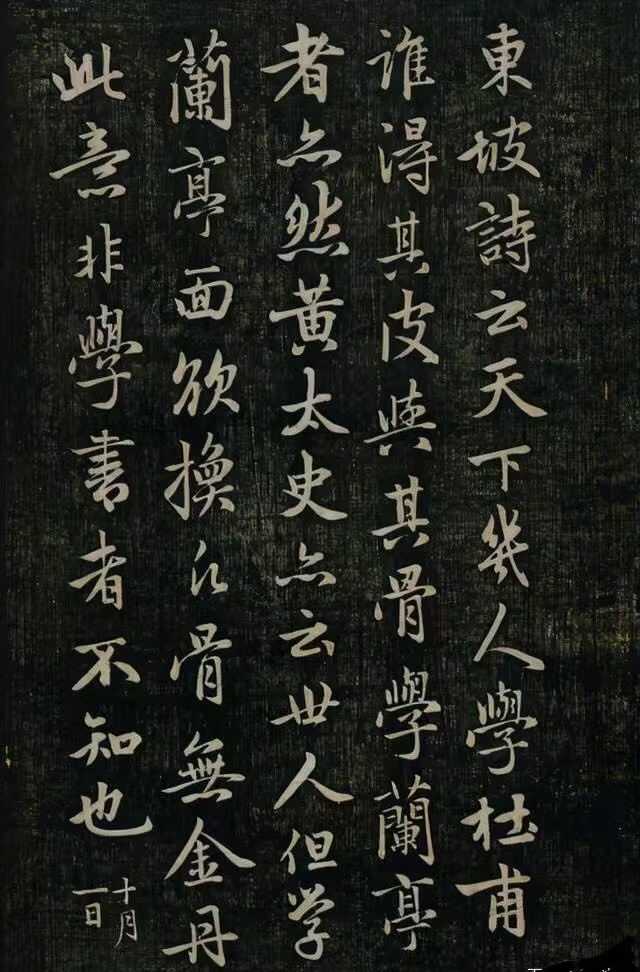 東坡詩云天下幾人學杜甫
誰得其皮與其骨學蘭亭
者亦然黃太史亦云世人但学
蘭亭面欲換凡骨無金丹
此意非學書者不知也
十月
一日